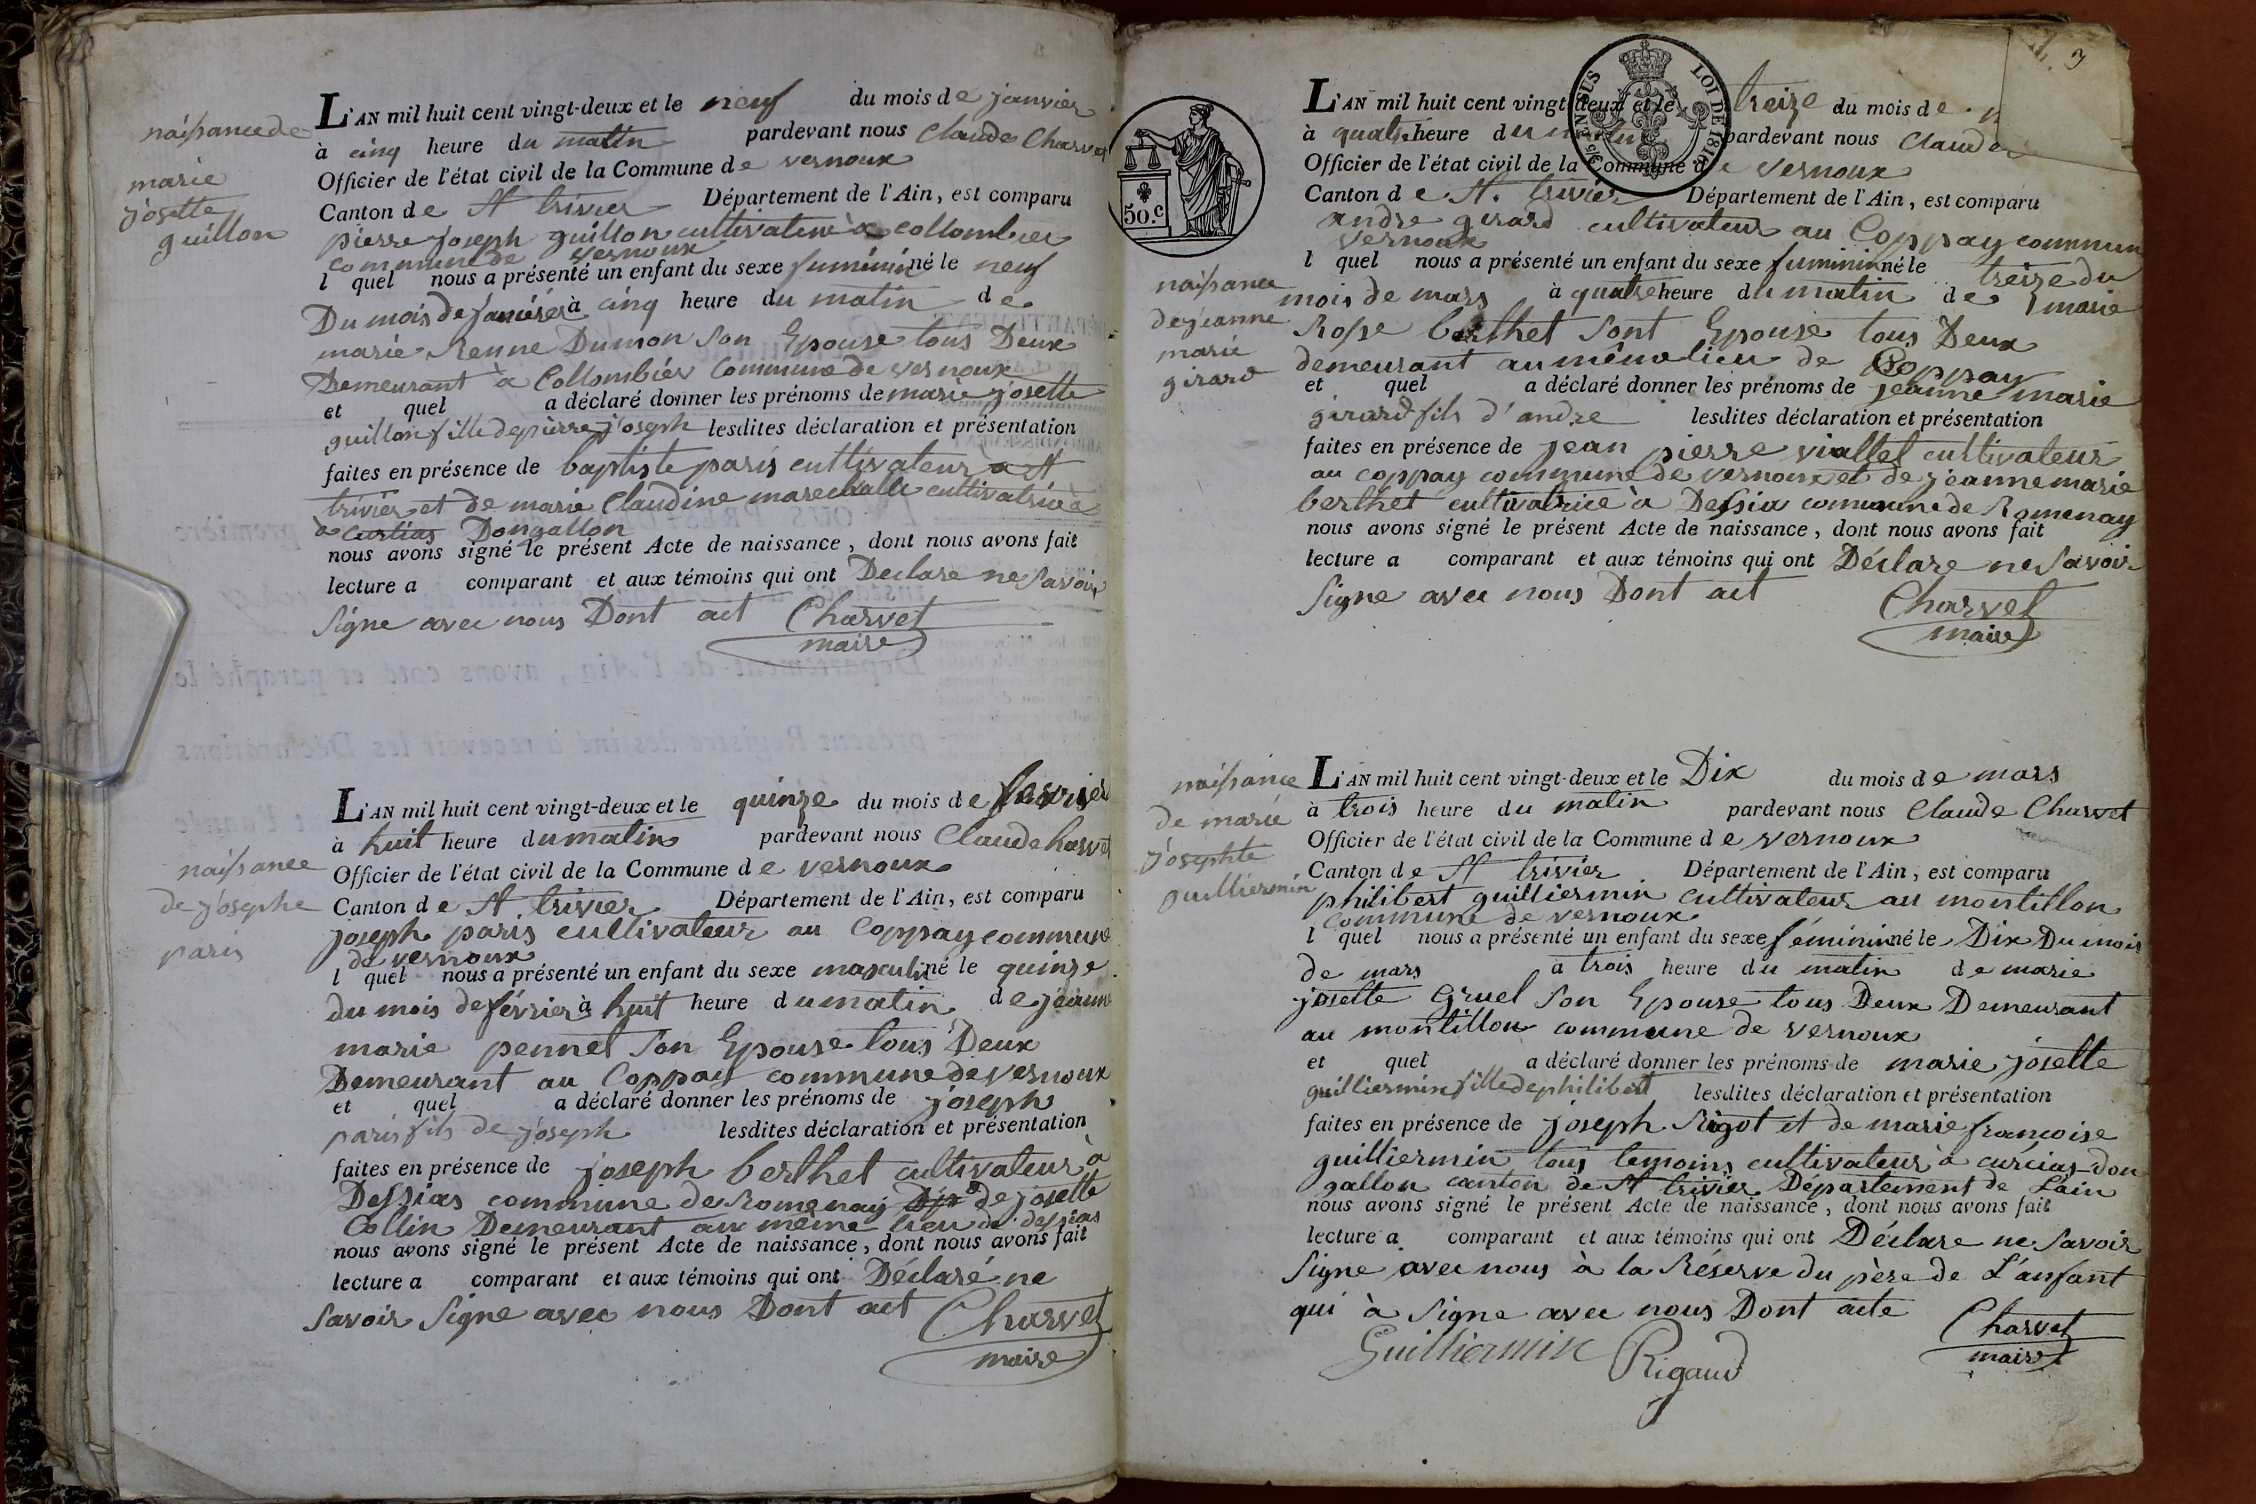 naissance de
marie
josette
guillon
L'AN mil huit cent vingt-deux et le neuf du mois de janvier
à cinq heure du matin pardevant nous Claude Charvet
Officier de l'état civil de la Commune de vernoux
Canton de St trivier Département de l'Ain, est comparu
pierre joseph guillon cultivateur à collombier
commune de vernoux
l quel nous a présenté un enfant du sexe féminin né le neuf
Du mois de à cinq heure du matin de
marie Renne Dumon son Epouse tous Deux
Demeurant à Collombier Commune de vernoux
et quel a déclaré donner les prénoms de marie josette
guillon fille de pierre joseph lesdites déclaration et présentation
faites en présence de baptiste paris cultivateur a St
trivier et de marie Claudine cultivatrice à
Curtias Dongallon
nous avons signé le présent Acte de naissance, dont nous avons fait
lecture a comparant et aux témoins qui ont Declare ne savoir
Signe avec nous Dont act Charvet
maire
naissance
de josephe
paris
L'AN mil huit cent vingt-deux et le quinze du mois de
à huit heure du matin pardevant nous Claude harvet
Officier de l'état civil de la Commune de vernoux
Canton de St trivier Département de l'Ain, est comparu
joseph paris cultivateur au Coppay commune
de vernoux
l quel nous a présenté un enfant du sexe masculin né le quinze
du mois de février à huit heure du matin de jeanne
marie pennet son Epouse tous Deux
Demeurant au Coppay commune de vernoux
et quel a déclaré donner les prénoms de joseph
paris fils de joseph lesdites déclaration et présentation
faites en présence de joseph berthet cultivateur à
Dessias commune de Romenay de josette
Collin Demeurant au même lieu de dessias
nous avons signé le présent Acte de naissance, dont nous avons fait
lecture a comparant et aux témoins qui ont Déclaré ne
savoir Signe avec nous Dont act Charvet
maire
3
50.c
5/10 EN SUS LOI DE 1816
naissance
de jeanne
marie
girard
L'AN mil huit cent vingt-deux et le treize du mois de
à quatre heure du matin pardevant nous Claude
Officier de l'état civil de la Commune de vernoux
Canton de St. trivier Département de l'Ain, est comparu
andre girard cultivateur au Coppay commun
vernoux
l quel nous a présenté un enfant du sexe feminin né le treize du
mois de mars à quatre heure du matin de marie
Rose berthet sont Epouse tous Deux
demeurant au même lieu de Coppay
et quel a déclaré donner les prénoms de jeanne marie
girard fils d'andre lesdites déclaration et présentation
faites en présence de jean pierre viallet cultivateur
au coppay commune de vernoux et de jeanne marie
berthet cultivatrice à Dessia commune de Romenay
nous avons signé le présent Acte de naissance, dont nous avons fait
lecture a comparant et aux témoins qui ont Déclare ne savoir
Signe avec nous Dont act Charvet
maire
naissance
de marie
josephte
guilliermin
L'AN mil huit cent vingt-deux et le Dix du mois de mars
à trois heure du matin pardevant nous Claude Charvet
Officier de l'état civil de la Commune de vernoux
Canton de St trivier Département de l'Ain, est comparu
philibert guilliermin cultivateur au montillon
commune de vernoux
l quel nous a présenté un enfant du sexe féminin né le Dix Du mois
de mars à trois heure du matin de marie
josette Gruel son Epouse tous Deux Demeurant
au montillon commune de vernoux
et quel a déclaré donner les prénoms de marie josette
guilliermin fille de philibert lesdites déclaration et présentation
faites en présence de joseph Rigot et de marie françoise
guilliermin tous temoins cultivateur à curcias-don
gallon canton de St trivier Département de L'ain
nous avons signé le présent Acte de naissance, dont nous avons fait
lecture a comparant et aux témoins qui ont Déclare ne Savoir
Signe avec nous à la Réserve du père de L'anfant
qui à Signe avec nous Dont acte Charvet
maire
Guilliermin Rigaud